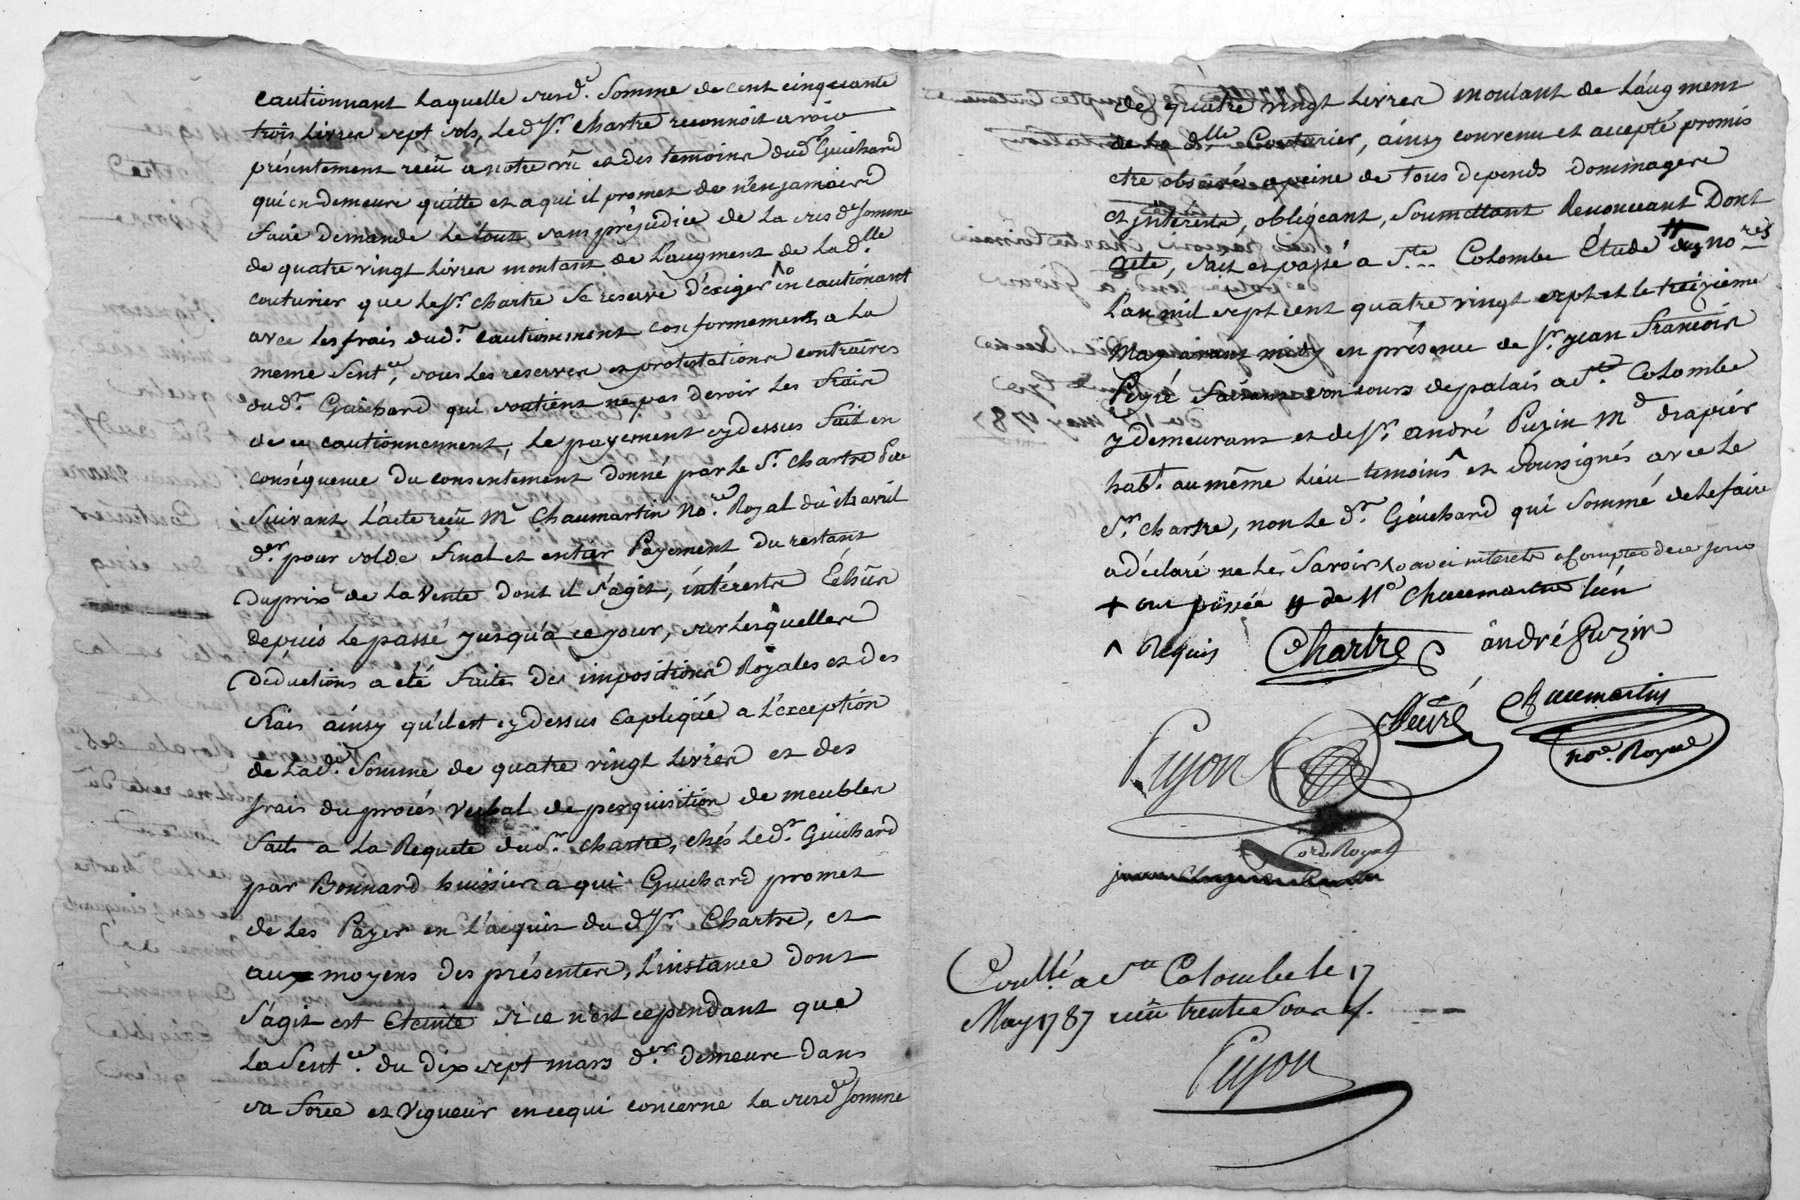 cautionnant laquelle susde. Somme de cent cinquante
trois Livres sept sols, led Sr. Chartre reconnoit avoir
présentement reçû a notre vû et des temoins dudt. Guichard
qui en demeure quitte et a qui il promet de n'en jamais
faire demande le tout sans préjudice de la susde Somme
de quatre vingt Livres montant de L'augment de La dlle
couturier que le Sr. Chartre se reserve d'éxiger en cautionant
avec les frais dudt. cautionnement conformement a La
meme Sentce, sous les reserves et protestations contraires
dudt. Guichard qui soutient ne pas devoir les frais
de ce cautionnement, Le payement cy dessus fait en
conséquence du consentement donné par le Sr. Chartre Pere
suivant L'acte reçû Me Chaumartin Nore. Royal du avril
der pour solde final et entier Payement du restant
du prix de La Vente dont il s'agit, intérestre Echûs
depuis le passé jusqu'a ce jour, sur Lesquelles
Déductions a eté faites des impositions Royales et des
frais ainsy qu'il est cy dessus Expliqué a L'éxception
de La de. Somme de quatre vingt Livres et des
frais du procés verbal de perquisition de meubles
faits a La Requete dudt Sr. Chartre, chés le dt. Guichard
par Bonnard huissier a qui Guichard promet
de les Payer en l'acquit du d Sr. Chartre, et
aux moyens des présentes, L'instance dont
s'agit est Eteinte si ce n'est cependant que
La Sentce. du dix sept mars der. demeure dans
sa Force et Vigueur en ce qui concerne La susde Somme
de quatre vingt Livres moulant de L'augment
de La dlle Couturier, ainsy convenu et accepté promis
etre observé a peine de tous depends dommages
et jnterets, obligeant, Soumettant Renonceant Dont
acte, fait et passé a Ste. Colombe Étude # des nores
L'an mil sept cent quatre vingt sept et le treizieme
May avant midy en présence de Sr. jean francois
Peyré faisant son cours de palais a Ste. Colombe
y demeurant et de Sr. andré Puzin Md drapier
habt. au même Lieu temoins ^ et soussignés avec le
Sr. Chartre, non le dt. Guichard qui sommé de le faire
a déclaré ne le Savoir avec interets a Compter de ce jour
+ ont passée # de Me Chaumartin l'un
^ Requis Chartre andré Puzin
Peyré Chaumartin
nore. Royal
Pujon
nore Royal
Conllé. a Ste Colombe le 17
May 1787 reçû trente sous
Pujon